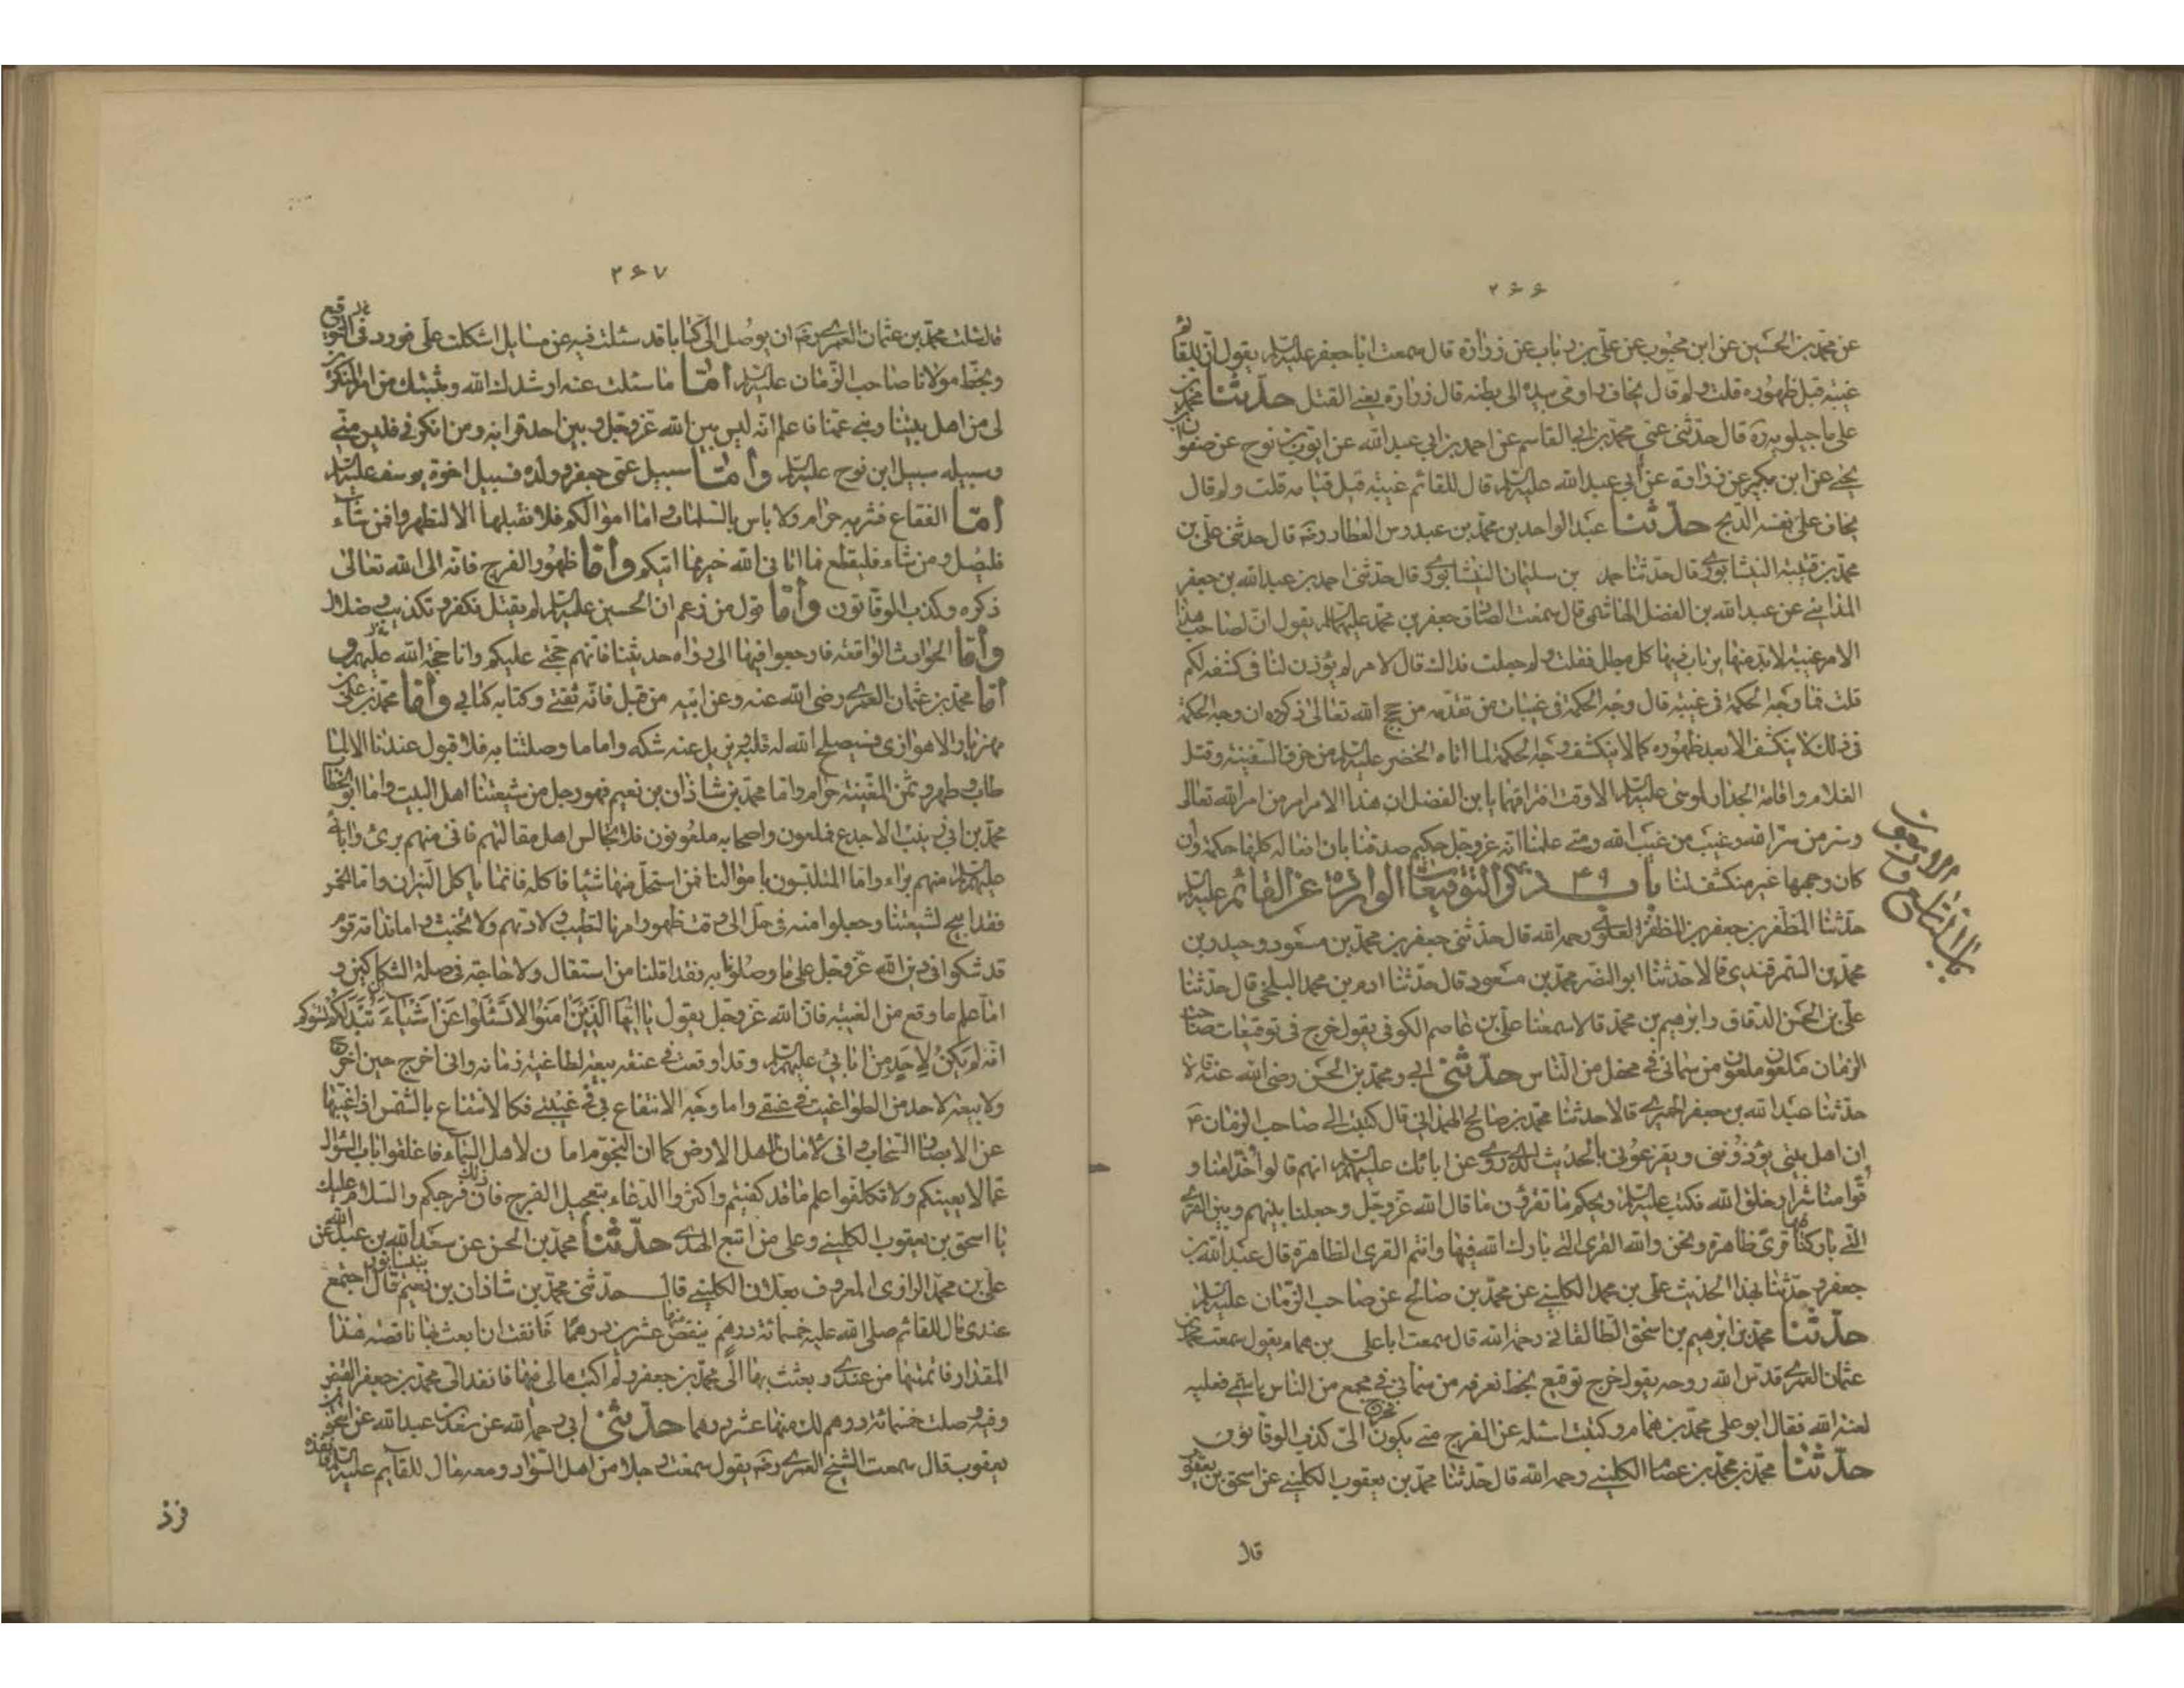 ۲۶۶
عن محمد بن الحسين عن ابن محبوب عن علي بن رئاب عن زرارة قال سمعت ابا جعفر عليه السلم يقول ان للقائم
غيبة قبل ظهوره قلت ولم قال يخاف واومى بيده الى بطنه قال زرارة يعني القتل حدثنا محمد بن
علي ماجيلويه ره قال حدثني عمي محمد بن ابي القاسم عن احمد بن ابي عبد الله عن ايوب بن نوح عن صفوان بن
يحيى عن ابن بكير عن زرارة عن ابي عبد الله عليه السلم قال للقائم غيبة قبل قيامه قلت ولم قال
يخاف على نفسه الذبح حدثنا عبد الواحد بن محمد بن عبدوس العطار رضه قال حدثني علي بن
محمد بن قتيبة النيشابوري قال حدثنا حمد بن سليمان النيشابوري قال حدثني احمد بن عبد الله بن جعفر
المدائني عن عبد الله بن الفضل الهاشمي قال سمعت الصادق جعفر بن محمد عليهما السلم يقول ان لصاحب هذا
الامر غيبة لا بد منها يرتاب فيها كل مبطل فقلت ولم جعلت فداك قال لامر لم يؤذن لنا في كشفه لكم
قلت فما وجه الحكمة في غيبته قال وجه الحكمة في غيبات من تقدمه من حجج الله تعالى ذكره ان وجه الحكمة
في ذلك لا ينكشف الا بعد ظهوره كما لا ينكشف وجه الحكمة لما اتاه الخضر عليه السلم من خرق السفينة وقتل
الغلام واقامة الجدار لموسى عليه السلم الا وقت افتراقهما يا بن الفضل ان هذا الامر امر من امر الله تعالى
وسر من سر الله وغيب من غيب الله ومتى علمنا انه عز وجل حكيم صدقنا بان افعاله كلها حكمة وان
كان وجهها غير منكشف لنا باب ۴۹ ذكر التوقيعات الواردة عن القائم عليه السلم
حدثنا المظفر بن جعفر بن المظفر العلوي رحمه الله قال حدثني جعفر بن محمد بن مسعود وحيدر بن
محمد بن السمرقندي قالا حدثنا ابو النضر محمد بن مسعود قال حدثنا ادم بن محمد البلخي قال حدثنا
علي بن الحسن الدقاق وابرهيم بن محمد قالا سمعنا علي بن عاصم الكوفي يقول خرج في توقيعات صاحب
الزمان ملعون ملعون من سماني في محفل من الناس حدثني ابي ومحمد بن الحسن رضي الله عنه قالا
حدثنا عبد الله بن جعفر الحميري قالا حدثنا محمد بن صالح الهمداني قال كتبت الى صاحب الزمان ع
ان اهل بيتي يؤذونني ويقرعوني بالحديث الذي روي عن ابائك عليهم السلم انهم قالوا خدامنا و
قوامنا شرار خلق الله فكتب عليه السلم ويحكم ما تقرؤن ما قال الله عز وجل وجعلنا بينهم وبين القرى
التي باركنا فيها قرى ظاهرة ونحن والله القرى التي بارك الله فيها وانتم القرى الظاهرة قال عبد الله بن
جعفر وحدثنا بهذا الحديث علي بن محمد الكليني عن محمد بن صالح عن صاحب الزمان عليه السلم
حدثنا محمد بن ابرهيم بن اسحق الطالقاني رحمه الله قال سمعت ابا علي بن همام يقول سمعت محمد بن
عثمان العمري قدس الله روحه يقول خرج توقيع بخط نعرفه من سماني في مجمع من الناس باسمي فعليه
لعنة الله فقال ابو علي محمد بن همام وكتبت اسئله عن الفرج متى يكون فخرج الي كذب الوقاتون
حدثنا محمد بن محمد بن عصام الكليني رحمه الله قال حدثنا محمد بن يعقوب الكليني عن اسحق بن يعقوب
قال
باب التاسع والاربعون
۲۶۷
قال سئلت محمد بن عثمان العمري رضه ان يوصل الي كتابا قد سئلت فيه عن مسايل اشكلت علي فورد في التوقيع
بخط مولانا صاحب الزمان عليه السلم اما ما سئلت عنه ارشدك الله وثبتك من امر المنكرين
لي من اهل بيتنا وبني عمنا فاعلم انه ليس بين الله عز وجل وبين احد قرابة ومن انكرني فليس مني
وسبيله سبيل ابن نوح عليه السلم واما سبيل عمي جعفر وولده فسبيل اخوة يوسف عليه السلم
اما الفقاع فشربه حرام ولا باس بالسلمات واما اموالكم فلا نقبلها الا لتطهروا فمن شاء
فليصل ومن شاء فليقطع فما اتاني الله خير مما اتيكم واما ظهور الفرج فانه الى الله تعالى
ذكره وكذب الوقاتون واما قول من زعم ان الحسين عليه السلم لم يقتل فكفر وتكذيب وضلال
واما الحوادث الواقعة فارجعوا فيها الى رواة حديثنا فانهم حجتي عليكم وانا حجة الله عليهم و
اما محمد بن عثمان العمري رضي الله عنه وعن ابيه من قبل فانه ثقتي وكتابه كتابي واما محمد بن علي بن
مهزيار الاهوازي فسيصلح الله له قلبه ويزيل عنه شكه واما ما وصلتنا به فلا قبول عندنا الا لما
طاب وطهر وثمن المغنية حرام واما محمد بن شاذان بن نعيم فهو رجل من شيعتنا اهل البيت واما ابو الخطاب
محمد بن ابي زينب الاجدع فملعون واصحابه ملعونون فلا تجالس اهل مقالتهم فاني منهم برئ وابائي
عليهم السلم منهم براء واما المتلبسون باموالنا فمن استحل منها شيئا فاكله فانما ياكل النيران واما الخمس
فقد ابيح لشيعتنا وجعلوا منه في حل الى وقت ظهور امرنا لتطيب ولادتهم ولا تخبث واما ندامة قوم
قد شكوا في دين الله عز وجل على ما وصلونا به فقد اقلنا من استقال ولا حاجة في صلة الشكاكين و
اما علة ما وقع من الغيبة فان الله عز وجل يقول يا ايها الذين امنوا لا تسئلوا عن اشياء ان تبد لكم تسوكم
انه لم يكن لاحد من ابائي عليهم السلم وقد اوقعت في عنقه بيعة لطاغية زمانه واني اخرج حين اخرج
ولا بيعة لاحد من الطواغيت في عنقي واما وجه الانتفاع بي في غيبتي فكالانتفاع بالشمس اذا غيبها
عن الابصار السحاب واني لامان لاهل الارض كما ان النجوم امان لاهل السماء فاغلقوا باب السؤال
عما لا يعينكم ولا تتكلفوا علم ما قد كفيتم واكثروا الدعاء بتعجيل الفرج فان ذلك فرجكم والسلام عليك
يا اسحق بن يعقوب الكليني وعلى من اتبع الهدى حدثنا محمد بن الحسن عن سعد الله بن عبد الله عن
علي بن محمد الرازي المعروف بعلان الكليني قال حدثني محمد بن شاذان بن نعيم بنيسابور قال اجتمع
عندي مال للقائم صلى الله عليه خمسمائة درهم ينقص منها عشرين درهما فانفت ان ابعث بها ناقصة هذا
المقدار فاتممتها من عندي وبعثت بها الى محمد بن جعفر ولم اكتب مالي فيها فانفذ الي محمد بن جعفر القبض
وفيه وصلت خمسمائة درهم لك منها عشرون درهما حدثني ابي رحمه الله عن سعد بن عبد الله عن اسحق بن
يعقوب قال سمعت الشيخ العمري رضه يقول صحبت رجلا من اهل السواد ومعه مال للقائم عليه السلم فانفذه
فرذ